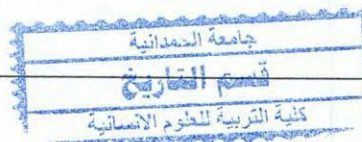 جامعة الحمدانية
قسم التاريخ
كلية التربية للعلوم الانسانية